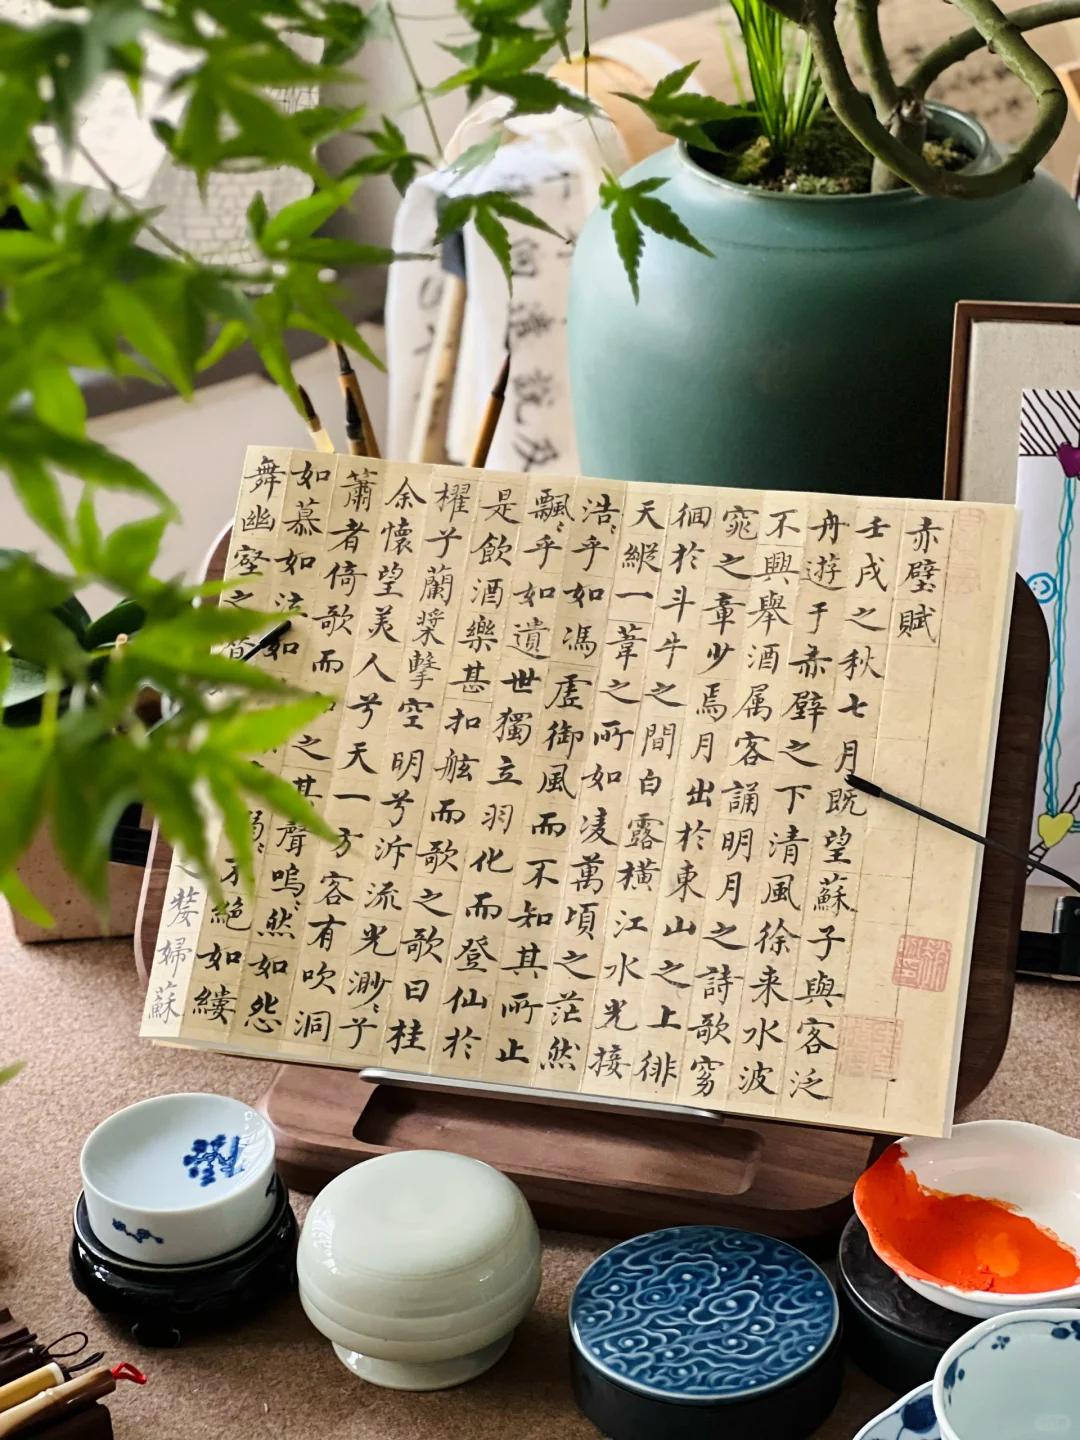 赤壁賦
壬戌之秋七月既望蘇子與客泛
舟遊于赤壁之下清風徐来水波
不興舉酒属客誦明月之詩歌窈
窕之章少焉月出於東山之上徘
徊於斗牛之間白露橫江水光接
天縱一葦之所如凌萬頃之茫然
浩〻乎如馮虛御風而不知其所止
飄〻乎如遺世獨立羽化而登仙於
是飲酒樂甚扣舷而歌之歌曰桂
櫂子蘭槳擊空明兮泝流光渺〻子
余懷望美人兮天一方客有吹洞
簫者倚歌而之其聲嗚〻然如怨
如慕如泣如〻不絕如縷
舞幽壑之潛嫠婦蘇